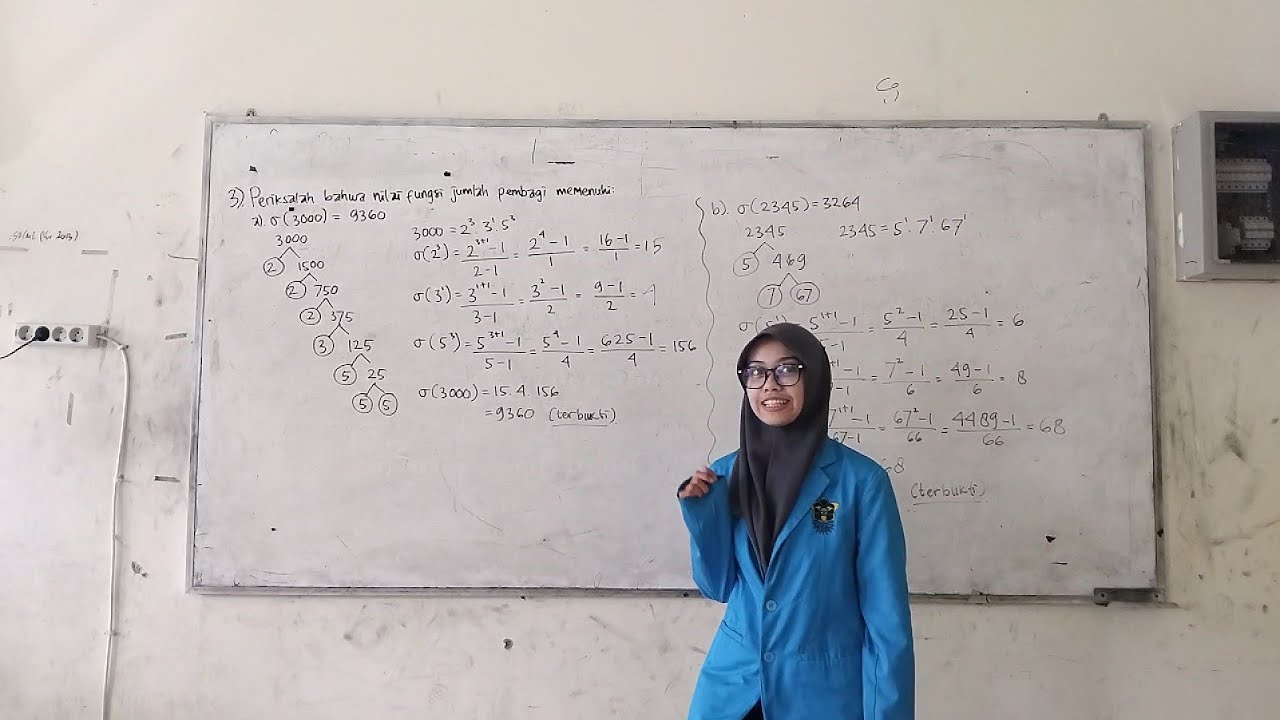 3) Periksalah bahwa nilai fungsi jumlah pembagi memenuhi:
a) σ(3000) = 9360
3000
2 1500
2 750
2 375
3 125
5 25
5 5
3000 = 2³. 3¹. 5³
σ(2³) = 2³⁺¹-1/2-1 = 2⁴-1/1 = 16-1/1 = 15
σ(3¹) = 3¹⁺¹-1/3-1 = 3²-1/2 = 9-1/2 = 4
σ(5³) = 5³⁺¹-1/5-1 = 5⁴-1/4 = 625-1/4 = 156
σ(3000) = 15. 4. 156
= 9360 (terbukti)
b). σ(2345) = 3264
2345
5 469
7 67
2345 = 5¹. 7¹. 67¹
σ(5¹) = 5¹⁺¹-1/5-1 = 5²-1/4 = 25-1/4 = 6
¹⁺¹-1/-1 = 7²-1/6 = 49-1/6 = 8
7¹⁺¹-1/67-1 = 67²-1/66 = 4489-1/66 = 68
68
(terbukti)